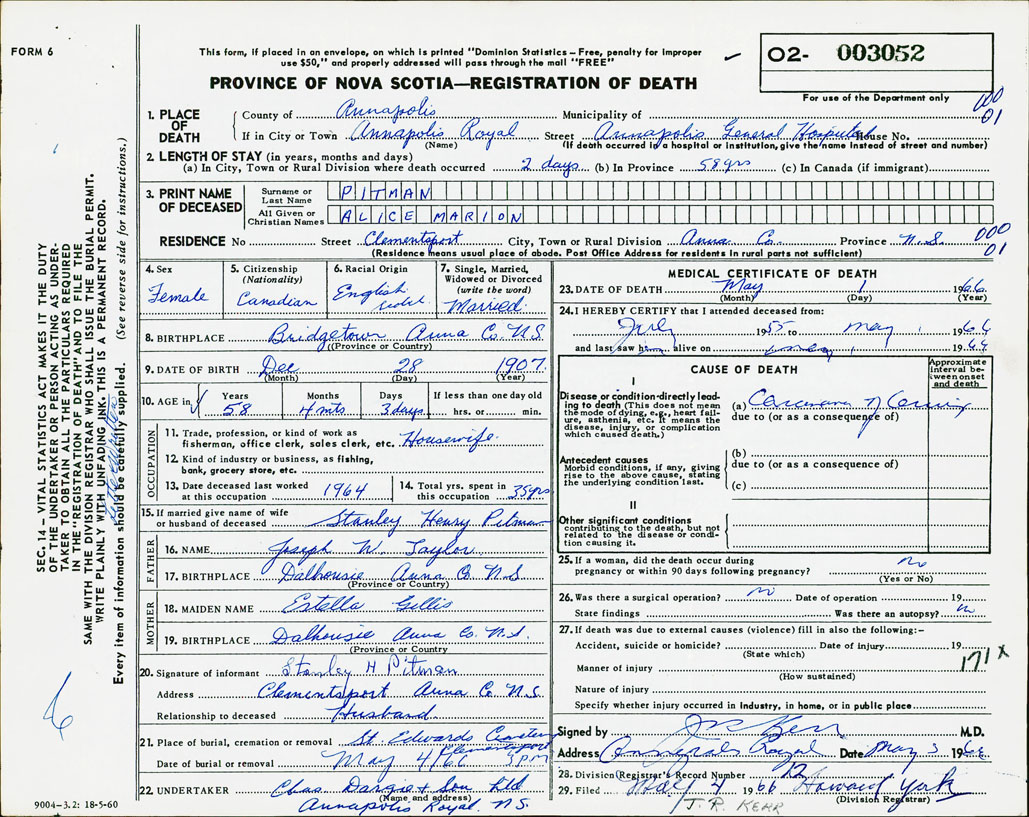 FORM 6
This form, if placed in an envelope, on which is printed "Dominion Statistics – Free, penalty for improper
use $50," and properly addressed will pass through the mail "FREE"
O2- 003052
PROVINCE OF NOVA SCOTIA—REGISTRATION OF DEATH
For use of the Department only
000
01
1. PLACE OF DEATH
County of Annapolis Municipality of
If in City or Town Annapolis Royal Street Annapolis General Hospital House No.
(Name) (If death occurred in a hospital or institution, give the name instead of street and number)
2. LENGTH OF STAY (in years, months and days)
(a) In City, Town or Rural Division where death occurred 2 days (b) In Province 58 yrs (c) In Canada (if immigrant)
3. PRINT NAME OF DECEASED
Surname or Last Name PITMAN
All Given or Christian Names ALICE MARION
RESIDENCE No Street Clementsport City, Town or Rural Division Anna Co. Province N.S. 000
01
(Residence means usual place of abode. Post Office Address for residents in rural parts not sufficient)
4. Sex
Female
5. Citizenship
(Nationality)
Canadian
6. Racial Origin
English
7. Single, Married,
Widowed or Divorced
(write the word)
Married
8. BIRTHPLACE Bridgetown Anna Co N.S.
(Province or Country)
9. DATE OF BIRTH Dec 28 1907
(Month) (Day) (Year)
10. AGE in
Years 58
Months 4 mts
Days 3 days
If less than one day old
hrs. or min.
OCCUPATION
11. Trade, profession, or kind of work as
fisherman, office clerk, sales clerk, etc. Housewife
12. Kind of industry or business, as fishing,
bank, grocery store, etc.
13. Date deceased last worked
at this occupation 1964
14. Total yrs. spent in
this occupation 35 yrs
15. If married give name of wife
or husband of deceased Stanley Henry Pitman
FATHER
16. NAME Joseph W. Taylor
17. BIRTHPLACE Dalhousie Anna Co N.S
(Province or Country)
MOTHER
18. MAIDEN NAME Estella Gillis
19. BIRTHPLACE Dalhousie Anna Co. N.S.
(Province or Country)
20. Signature of informant Stanley H Pitman
Address Clementsport Anna Co N.S.
Relationship to deceased Husband
21. Place of burial, cremation or removal St. Edwards Cemetery
Clementsport
Date of burial or removal May 4/66 3 PM
22. UNDERTAKER Chas Dargie & Son Ltd
(Name and address)
Annapolis Royal. N.S.
MEDICAL CERTIFICATE OF DEATH
23. DATE OF DEATH May 1 1966
(Month) (Day) (Year)
24. I HEREBY CERTIFY that I attended deceased from:
July 1955 to May 1 1966
and last saw him alive on May 1 1966
CAUSE OF DEATH
Approximate
interval be-
tween onset
and death
I
Disease or condition directly lead-
ing to death (This does not mean
the mode of dying, e.g., heart fail-
ure, asthenia, etc. It means the
disease, injury, or complication
which caused death.)
(a) Carcinoma of Cervix
due to (or as a consequence of)
Antecedent causes
Morbid conditions, if any, giving
rise to the above cause, stating
the underlying condition last.
(b)
due to (or as a consequence of)
(c)
II
Other significant conditions
contributing to the death, but not
related to the disease or condi-
tion causing it.
25. If a woman, did the death occur during
pregnancy or within 90 days following pregnancy? no
(Yes or No)
26. Was there a surgical operation? no Date of operation 19
State findings Was there an autopsy? no
27. If death was due to external causes (violence) fill in also the following:–
Accident, suicide or homicide? Date of injury 19
(State which)
171X
Manner of injury
(How sustained)
Nature of injury
Specify whether injury occurred in industry, in home, or in public place
Signed by J R Kerr M.D.
Address Annapolis Royal Date May 3 1966
28. Division Registrar's Record Number 12
29. Filed May 4 1966 Howard York
(Division Registrar)
J. R. KERR
9004–3.2: 18-5-60
SEC. 14 – VITAL STATISTICS ACT MAKES IT THE DUTY
OF THE UNDERTAKER OR PERSON ACTING AS UNDER-
TAKER TO OBTAIN ALL THE PARTICULARS REQUIRED
IN THE "REGISTRATION OF DEATH" AND TO FILE THE
SAME WITH THE DIVISION REGISTRAR WHO SHALL ISSUE THE BURIAL PERMIT.
WRITE PLAINLY WITH UNFADING INK. THIS IS A PERMANENT RECORD.
Every item of information should be carefully supplied. (See reverse side for instructions.)
6